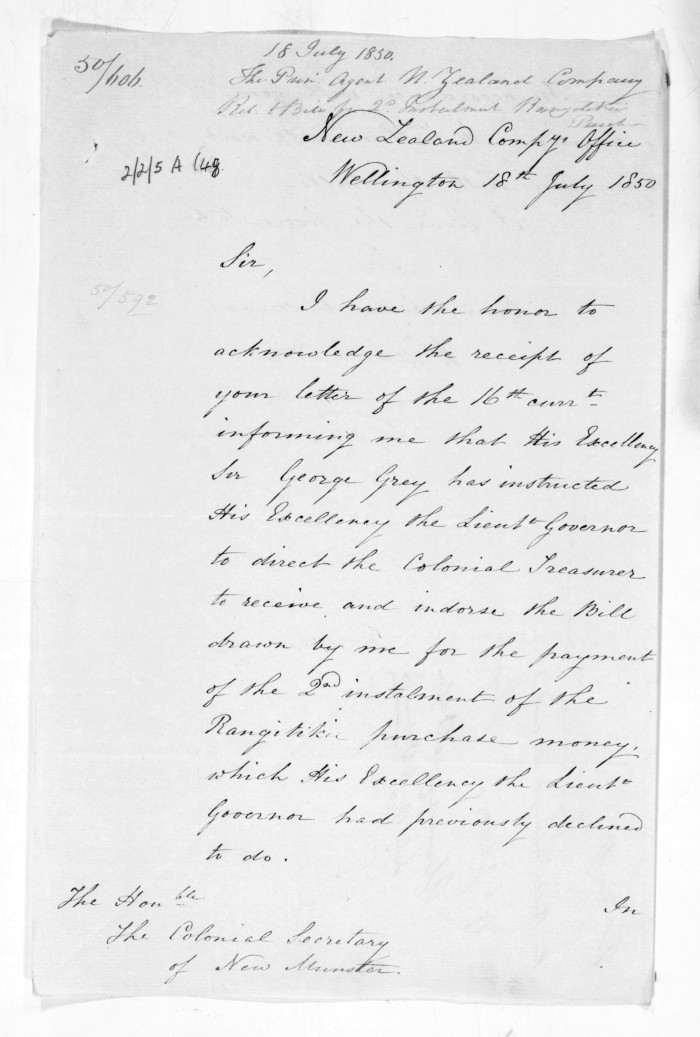 50/606.
18 July 1850.
The Prin. Agent N. Zealand Company
Rel. to Bill for 2d. Instalment
2/2/5 A (48
New Zealand Compys. Office
Wellington 18th July 1850
50/592
Sir,
I have the honor to
acknowledge the receipt of
your letter of the 16th currt.
informing me that His Excellency
Sir George Grey has instructed
His Excellency the Lieutt Governor
to direct the Colonial Treasurer
to receive and indorse the Bill
drawn by me for the payment
of the 2nd instalment of the
Rangitikie purchase money,
which His Excellency the Lieutt
Governor had previously declined
to do.
In
The Honble
The Colonial Secretary
of New Munster.